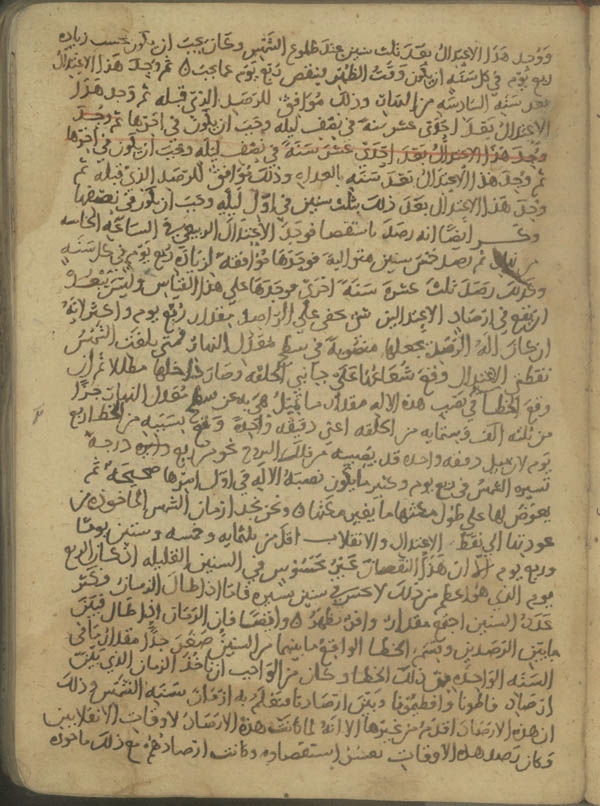 ووجد هذا الاعتدال بعد ثلث سنين عند طلوع الشمس وكان يجب ان يكون بحسب زيادة
ربع يوم في كل سنة ان يكون وقت الظهر ينقص ربع يوم عما يجب ثم وجد هذا الاعتدال
بعد سنة السادسة من النهار وذلك موافق للرصد الذي قبله ثم وجد هذا
الاعتدال بعد احدى عشر سنة في نصف ليلة وجب ان يكون في اخرها ثم وجد
وجد هذا الاعتدال بعد احدى عشر سنة في نصف ليلة وجب ان يكون في اخرها
ثم وجد هذا الاعتدال بعد سنة بالغداه وذلك موافق للرصد الذي قبله ثم
وجد هذا الاعتدال بعد ذلك بثلث سنين في اول ليلة وجب ان يكون في نصفها
وذكر ايضا انه رصد باستقصا فوجد الاعتدال الربيعي في الساعة الخامسة
ثم رصد خمس سنين متوالية فوجدها موافقة لزيادة ربع يوم في كل سنة
وكذلك رصد ثلث عشرة سنة اخرى فوجدها على هذا القياس وليس يبعد
ان يقع في ارصاد الاعتدالين شي خفي على الراصد مقدار ربع يوم واكثر لانه
ان كان الة الرصد يجعلها منصوبة في سطح معدل النهار فمتى بلغت الشمس
نقطتي الاعتدال وقع شعاعها على جانبي الحلقة وصار داخلها مظللا ثم ان
وقع الخطا في نصب هذه الالة مقدار ما تميل هي به عن سطح معدل النهار جزا
من ثلثة الف وستمايه من الحلقة اعني دقيقة واحدة وقع بسببه من الخطا ربع
يوم لان ميل دقيقة واحدة قد يصيبه من فلك البروج نحو من ربع واحده درجة
تسيره الشمس في ربع يوم وكثير ما يكون نصبة الالة في اول امرها صحيحة ثم
يعرض لها على طول مكثها ما يغير مكانها ونحن نجد ازمان الشمس الماخوذة من
عودتها الى نقط الاعتدال والانقلاب اقل من ثلثمايه وخمسة وستين يوما
وربع يوم الا ان هذا النقصان غير محسوس في السنين القليلة ان كان الربع
يوم الذي هو اعظم من ذلك لا يحس في سنين يسيرة فاما اذا طال الزمان وكثر
عدد السنين اجتمع مقدار وافر فظهر وايضا فان الزمان اذا طال فيما
ما بين الرصدين وقسم الخطا الواقع ما بينهما من السنين صغر جدا مقدار ما في
السنة الواحدة من ذلك الخطا وكان من الواجب ان ناخذ الزمان الذي بين
ارصاد ماطون واقطيمون وبين ارصادنا ونعلم به ازمان سنة الشمس وذلك
ان هذه الارصاد اقدم من غيرها الا انه لما كانت هذه الارصاد لاوقات الانقلابين
وكان رصد هذه الاوقات يعسر استقصاوه وكانت ارصادهم مع ذلك ماخوذة